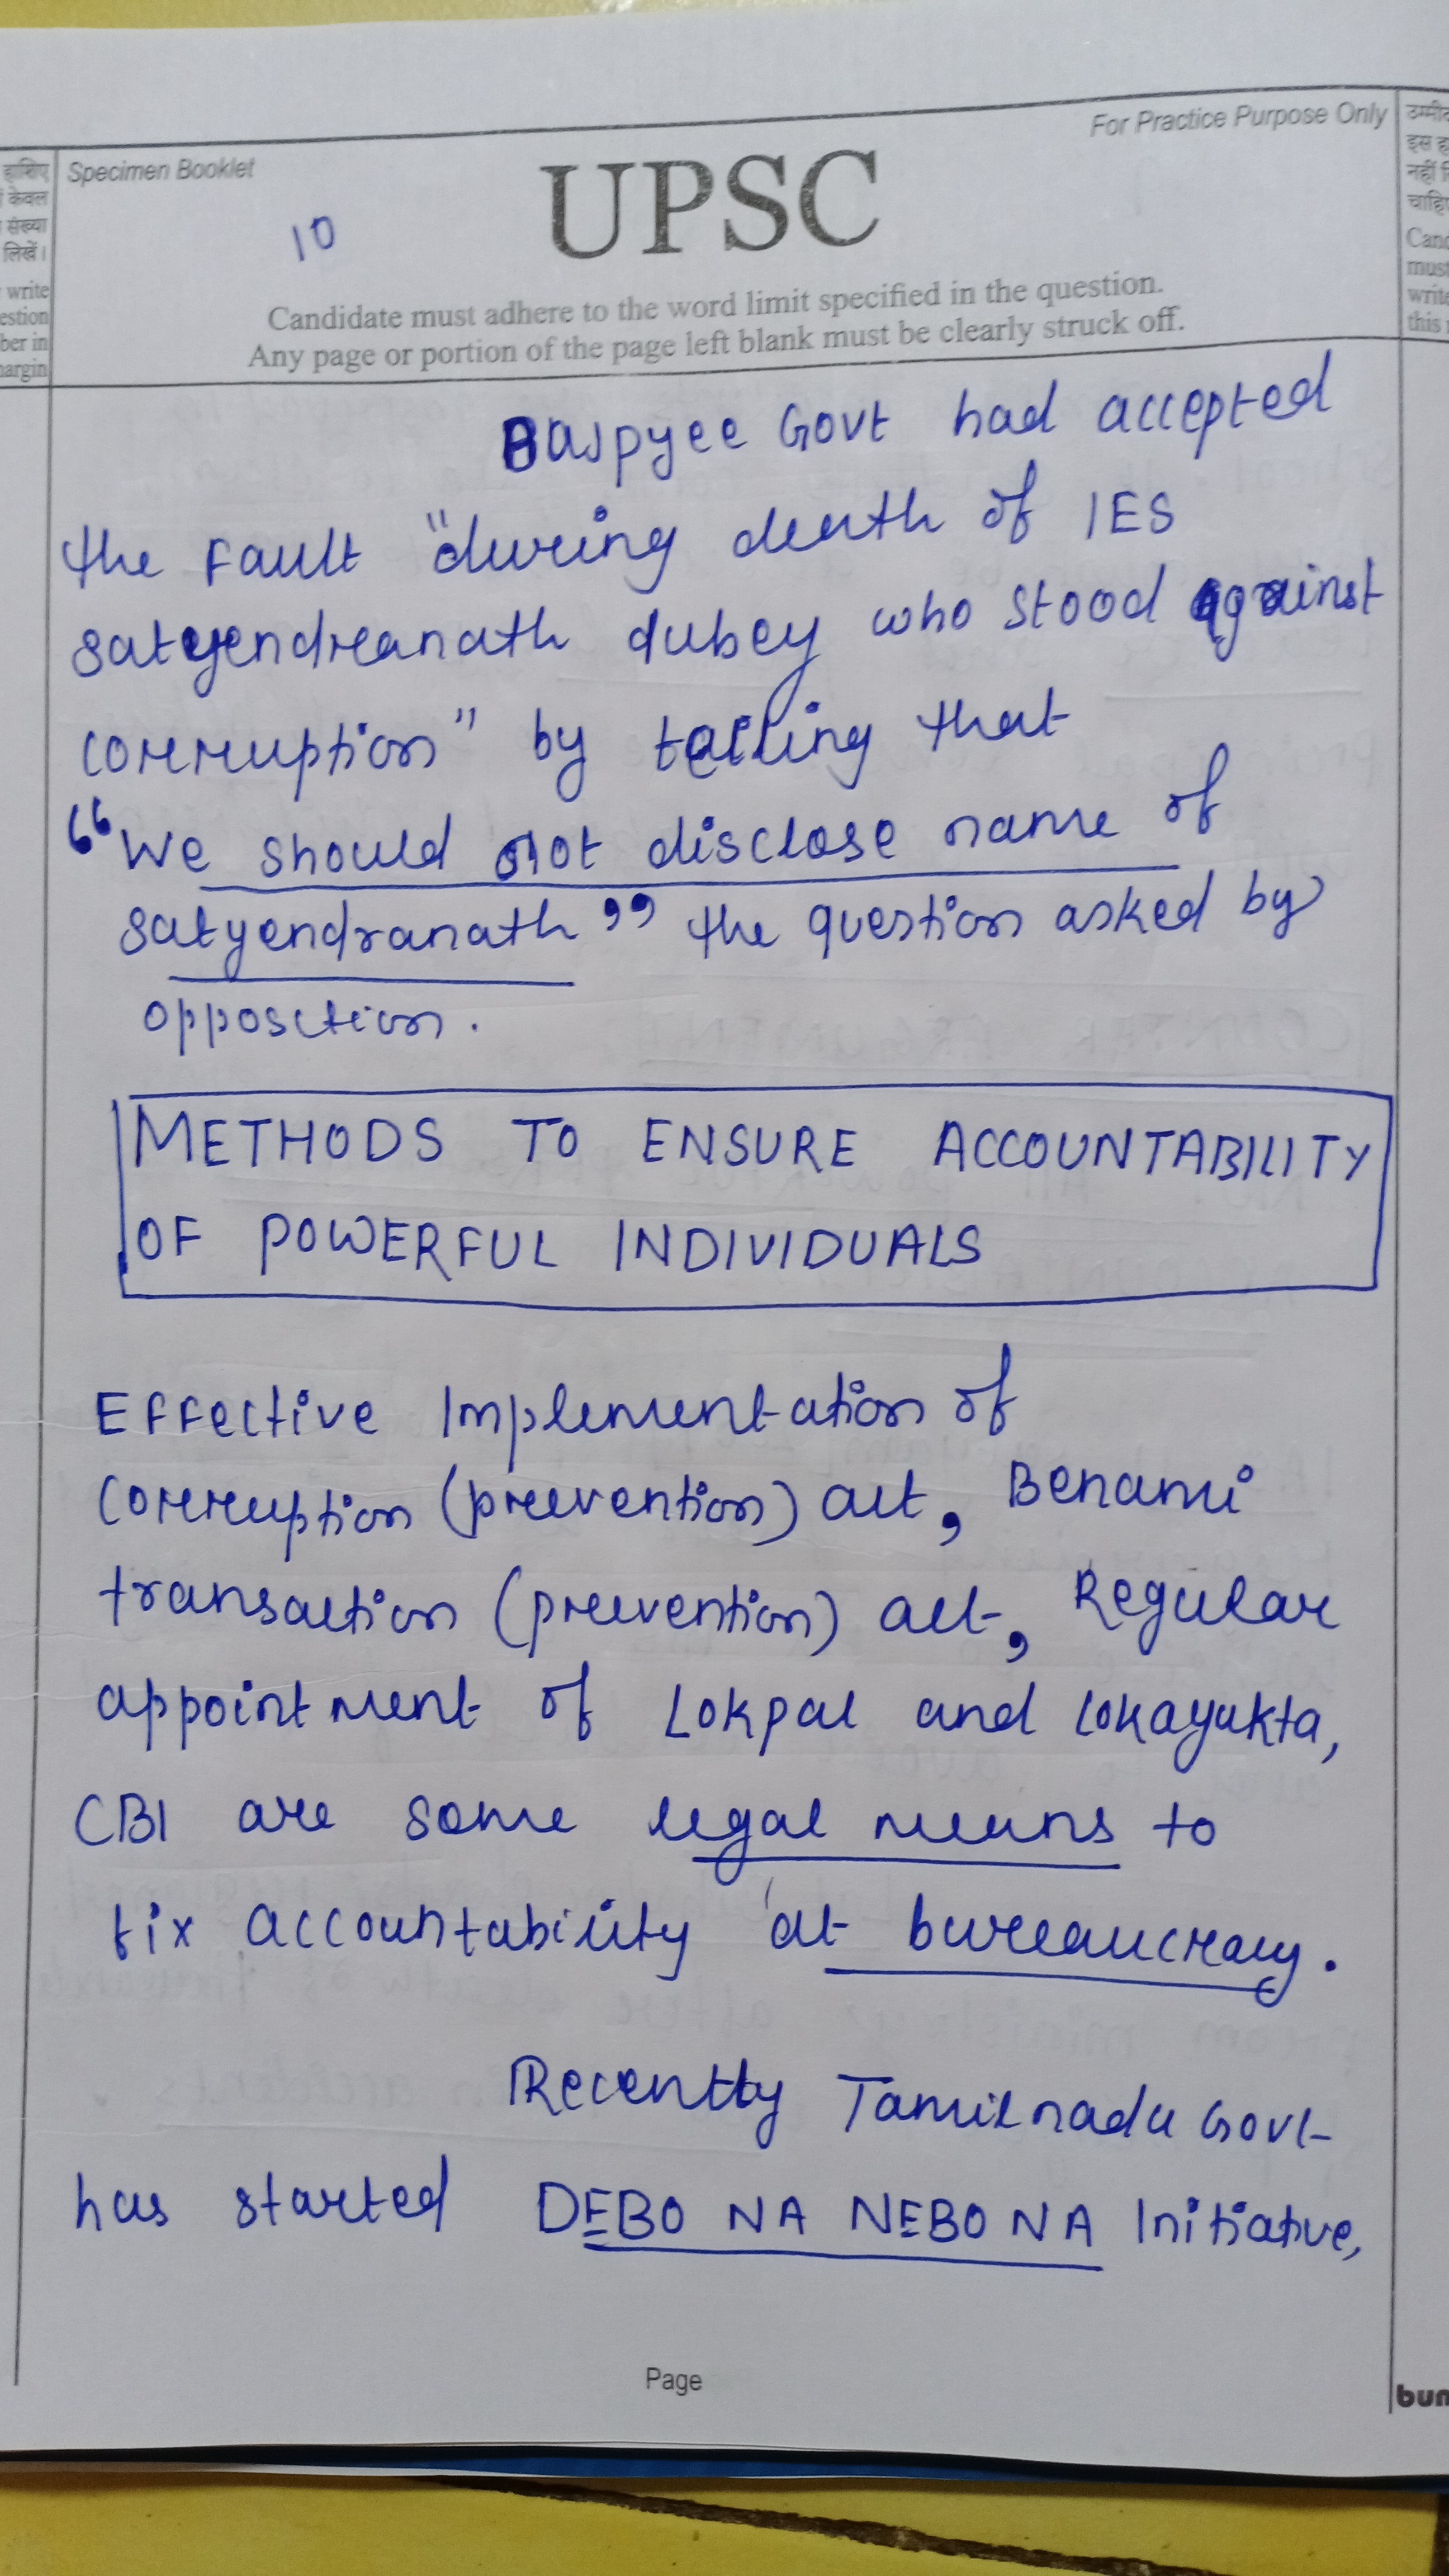 For Practice Purpose Only
Specimen Booklet
UPSC
10
Candidate must adhere to the word limit specified in the question.
Any page or portion of the page left blank must be clearly struck off.
हाशिए
केवल
संख्या
लिखें।
write
estion
ber in
margin
इस
नहीं
Cand
must
write
this
Bajpyee Govt had accepted
the fault "during death of IES
satyendranath dubey who stood against
corruption" by telling that
"We should not disclose name of
satyendranath" the question asked by
opposition.
METHODS TO ENSURE ACCOUNTABILITY
OF POWERFUL INDIVIDUALS
Effective Implementation of
corruption (prevention) act, Benami
transaction (prevention) act, Regular
appointment of Lokpal and lokayukta,
CBI are some legal means to
fix accountability at bureaucracy.
Recently Tamilnadu Govt
has started DEBO NA NEBO NA Initiative,
Page
bun